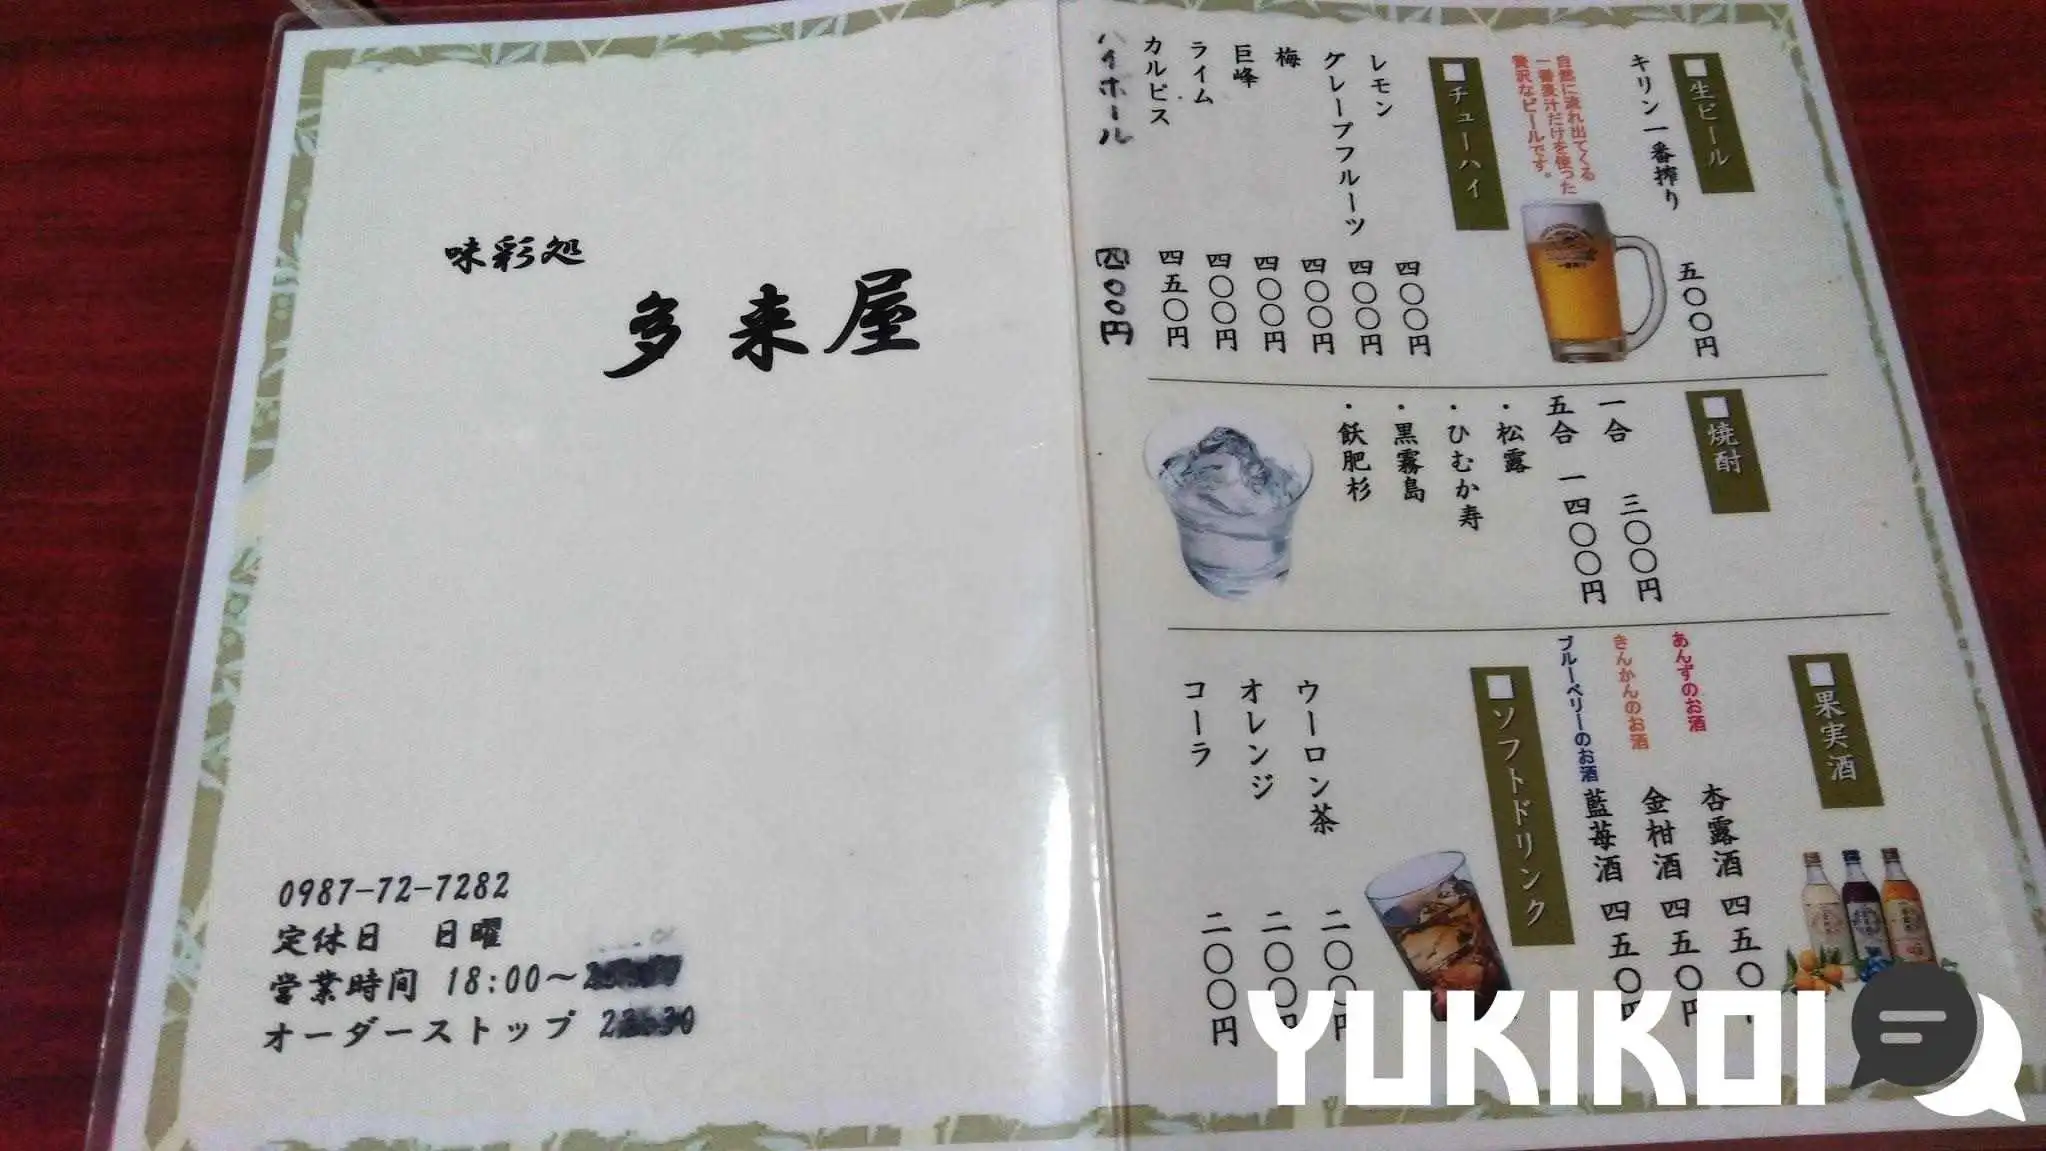 味彩処
多来屋
0987-72-7282
定休日 日曜
営業時間 18:00～
オーダーストップ
■生ビール
キリン一番搾り 五〇〇円
自然に流れ出てくる
一番麦汁だけを使った
贅沢なビールです。
■チューハイ
レモン 四〇〇円
グレープフルーツ 四〇〇円
梅 四〇〇円
巨峰 四〇〇円
ライム 四〇〇円
カルピス 四五〇円
ハイボール 四〇〇円
■焼酎
一合 三〇〇円
五合 一四〇〇円
・松露
・ひむか寿
・黒霧島
・飫肥杉
■果実酒
あんずのお酒 杏露酒 四五〇
きんかんのお酒 金柑酒 四五〇円
ブルーベリーのお酒 藍苺酒 四五〇円
■ソフトドリンク
ウーロン茶 二〇〇円
オレンジ 二〇〇円
コーラ 二〇〇円
YUKIKOI